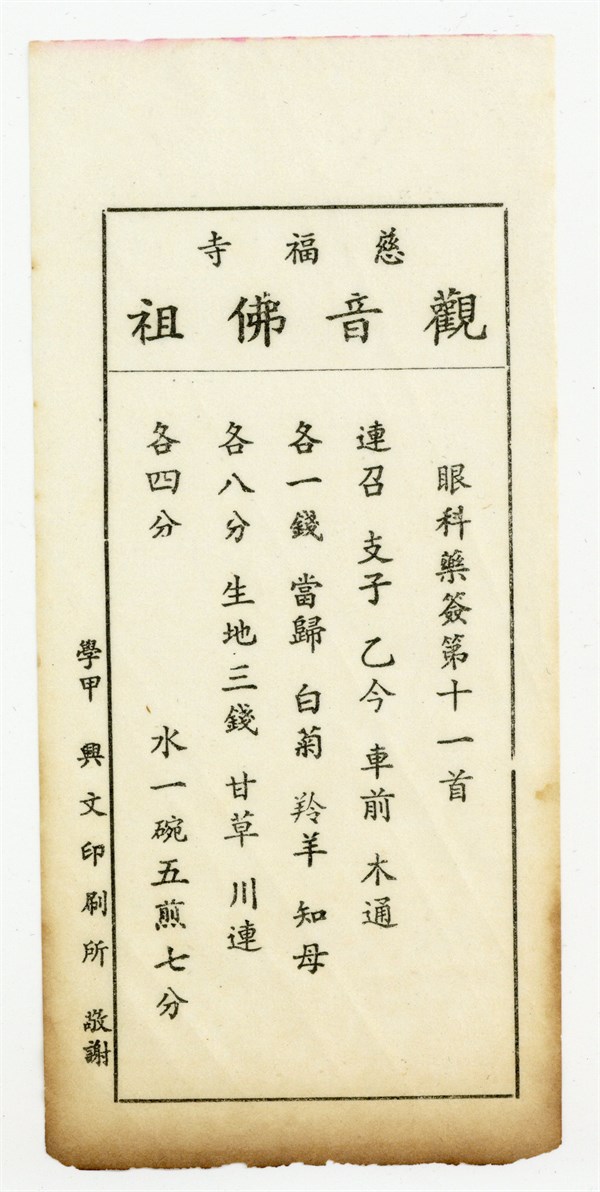 慈福寺
觀音佛祖
眼科藥簽第十一首
連召 支子 乙今 車前 木通
各一錢 當歸 白菊 羚羊 知母
各八分 生地三錢 甘草 川連
各四分 水一碗五煎七分
學甲 興文印刷所 敬謝